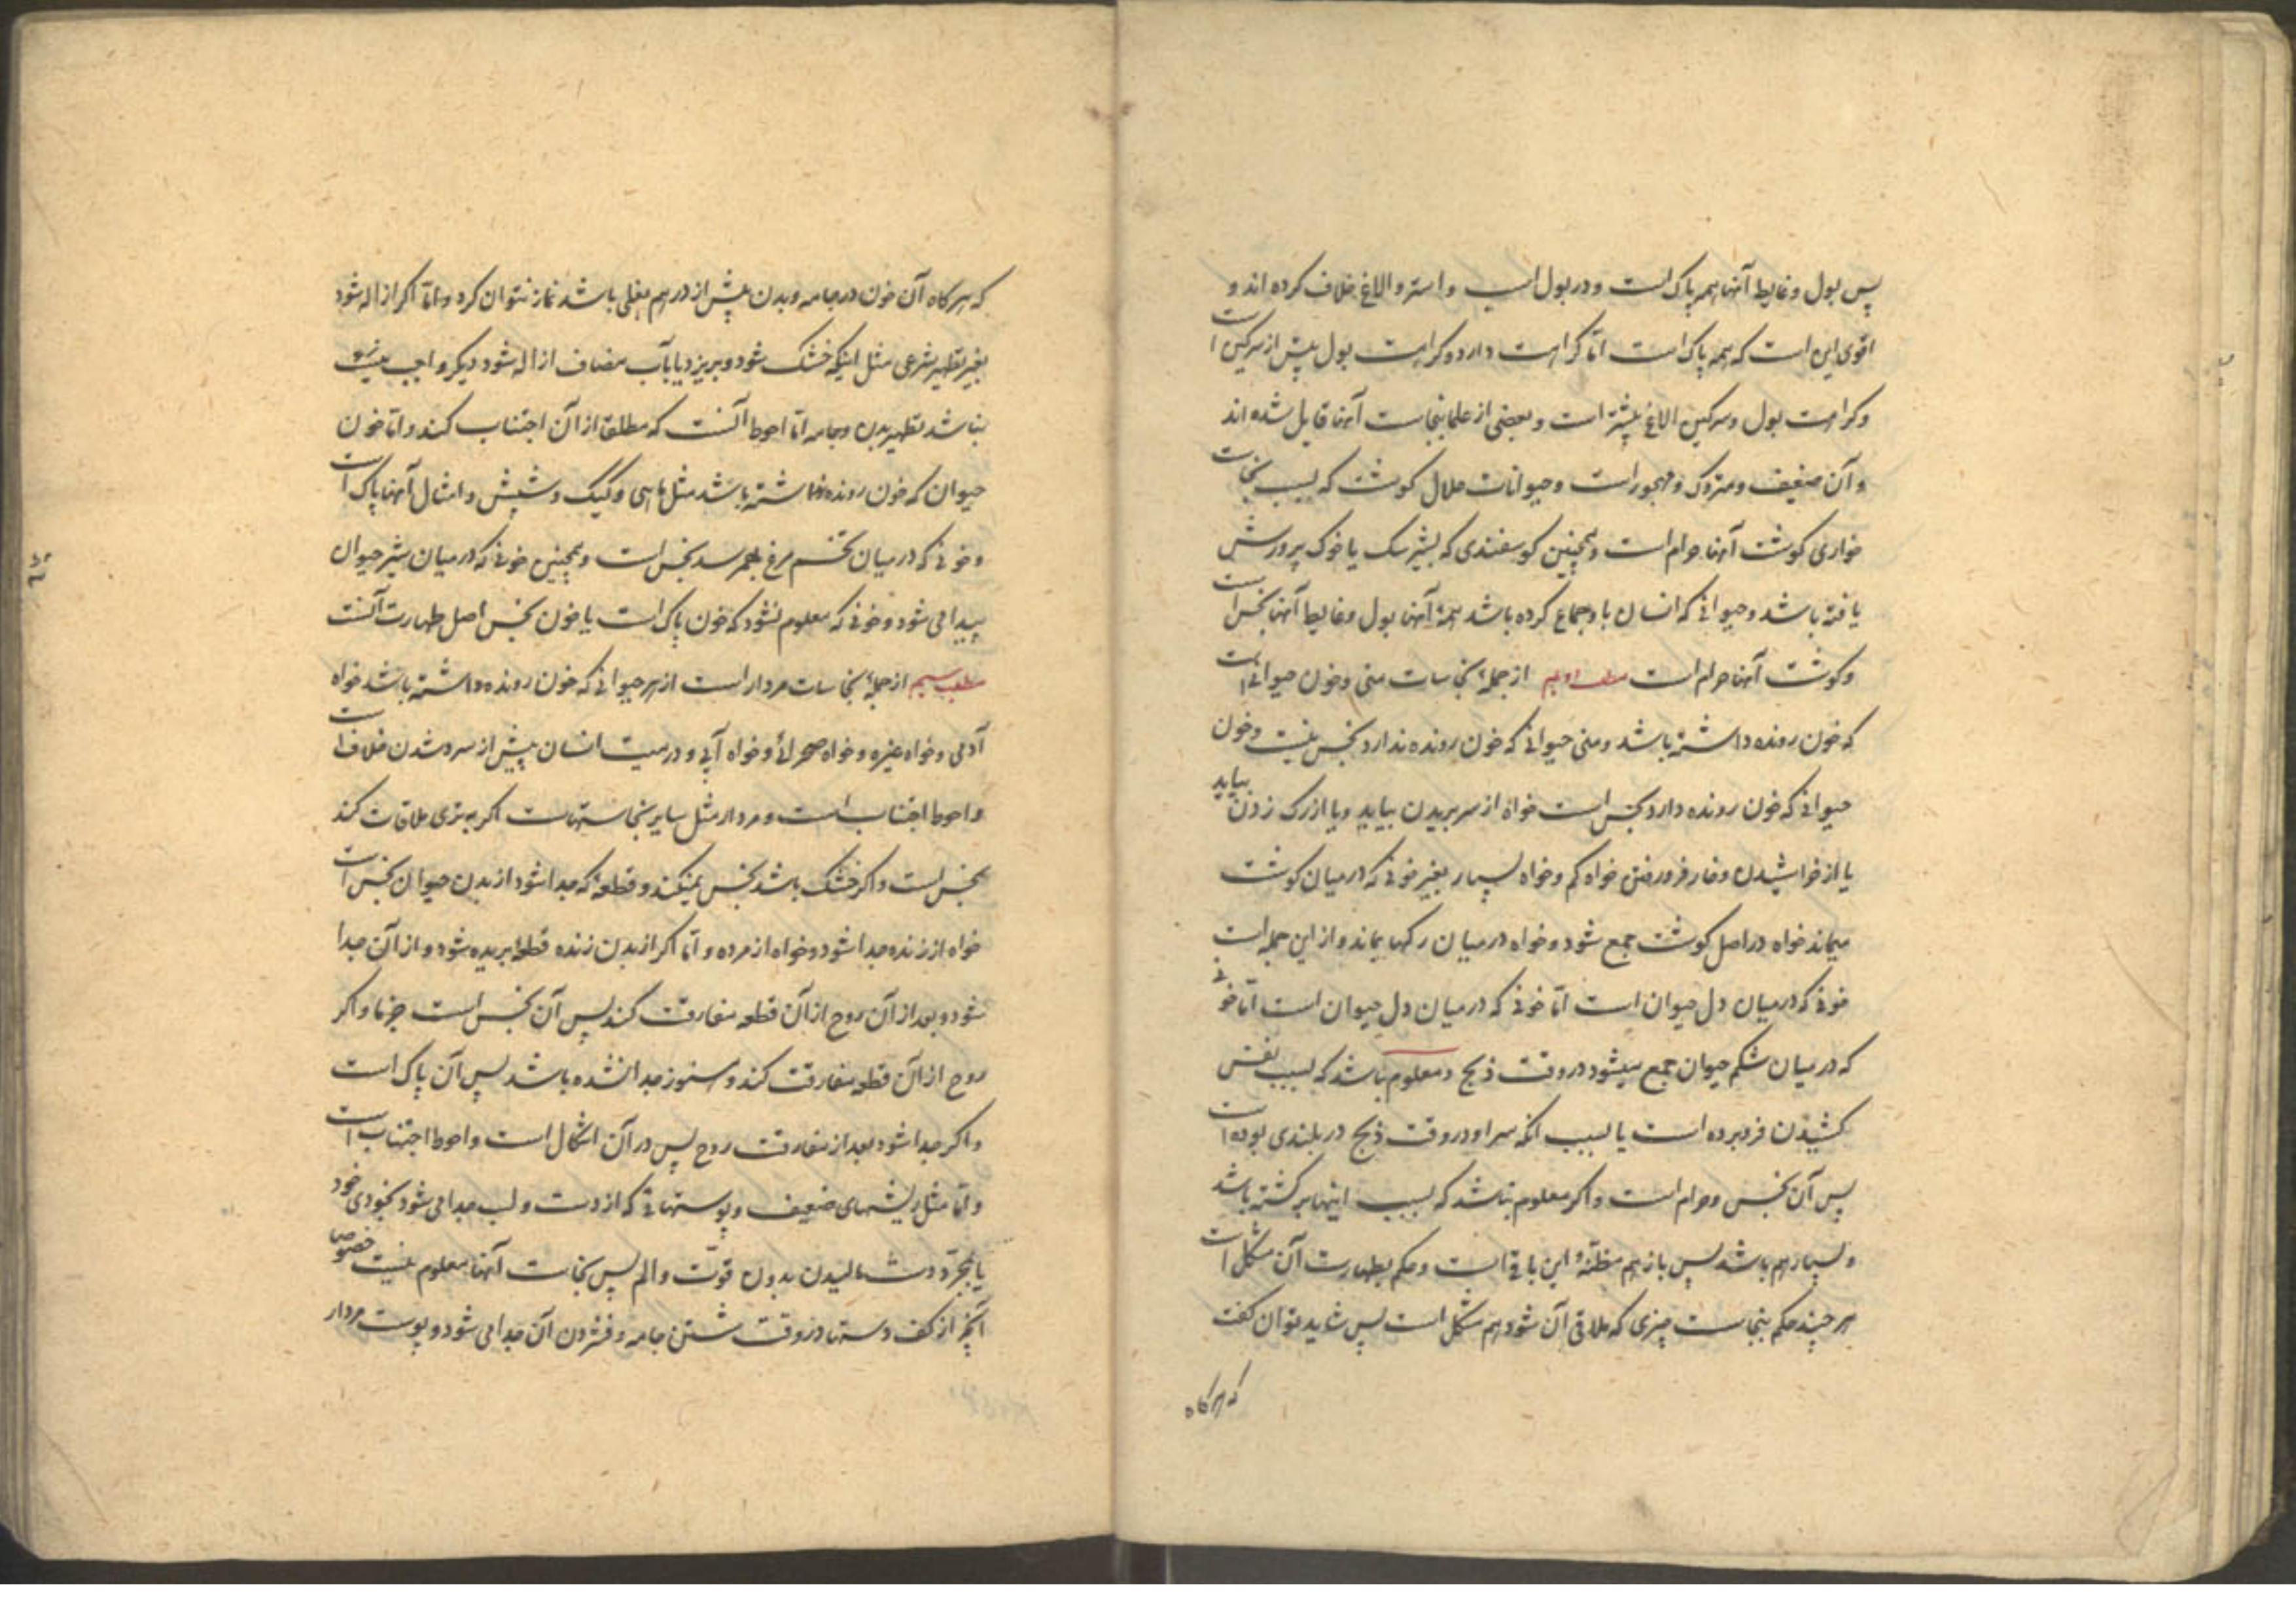 پس بول و غایط آنها همه پاک است و در بول اسب و استر و الاغ خلاف کرده اند و
اقوی این است که همه پاک است اما کراهت دارد و کراهت بول بیش از سرکین است
و کراهت بول و سرکین الاغ بیشتر است و بعضی از علما بنجاست آنها قایل شده اند
و آن ضعیف و متروک و مهجور است و حیوانات حلال کوشت که بسبب نجاست
خواری کوشت آنها حرام است و همچنین کوسفندی که بشیر سک یا خوک پرورش
یافته باشد و حیوانی که انسان با او جماع کرده باشد همهٔ آنها بول و غایط آنها نجس است
و کوشت آنها حرام است مطلب دویم از جملهٔ نجاسات منی و خون حیوانی است
که خون رونده داشته باشد و منی حیوانی که خون رونده ندارد نجس نیست و خون
حیوانی که خون رونده دارد نجس است خواه از سر بریدن بیاید و یا از رک زدن بیاید
یا از خراشیدن و خار فرو رفتن خواه کم و خواه بسیار بغیر خونی که در میان کوشت
میماند خواه در اصل کوشت جمع شود و خواه در میان رکها بماند و از این جمله است
خونی که در میان دل حیوان است اما خونی که در میان دل حیوان است اما خونی
که در میان شکم حیوان جمع میشود در وقت ذبح و معلوم باشد که بسبب نفس
کشیدن فرو برده است یا بسبب آنکه سر او در وقت ذبح در بلندی بوده است
پس آن نجس و حرام است و اکر معلوم نباشد که بسبب اینها برکشته باشد
و بسیار هم باشد پس باز هم مظنّهٔ این باقی است و حکم بطهارت آن مشکل است
هر چند حکم بنجاست چیزی که ملاقی آن شود هم مشکل است پس شاید توان کفت
که هرکاه
که هرکاه آن خون در جامه و بدن بیش از درهم بغلی باشد نماز نتوان کرد و اما اکر ازاله شود
بغیر تطهیر شرعی مثل اینکه خشک شود و بریزد یا بآب مضاف ازاله شود دیکر واجب
نباشد تطهیر بدن و جامه اما احوط آنست که مطلق از آن اجتناب کند و اما خون
حیوان که خون رونده نداشته باشد مثل ماهی و کیک و شپش و امثال آنها پاک است
و خونی که در میان تخم مرغ بهم رسد نجس است و همچنین خونی که در میان شیر حیوان
پیدا می شود و خونی که معلوم نشود که خون پاک است یا خون نجس اصل طهارت آنست
مطلب سیم از جملهٔ نجاسات مردار است از هر حیوانی که خون رونده داشته باشد خواه
آدمی و خواه غیره و خواه صحرائی و خواه آبی و در میت انسان پیش از سرد شدن خلاف است
و احوط اجتناب است و مردار مثل سایر نجاستهاست اکر به تری ملاقات کند
نجس است و اکر خشک باشد نجس نمیکند و قطعهٔ که جدا شود از بدن حیوان نجس است
خواه از زنده جدا شود و خواه از مرده و اما اکر از بدن زنده قطعه بریده شود و از آن جدا
نشود و بعد از آن روح از آن قطعه مفارقت کند پس آن نجس است جزما و اکر
روح از آن قطعه مفارقت کند و هنوز جدا نشده باشد پس آن پاک است
و اکر جدا شود بعد از مفارقت روح پس در آن اشکال است و احوط اجتناب است
و اما مثل ریشهای ضعیف و پوستهائی که از دست و لب جدا می شود بخودی خود
یا بمجرّد دست مالیدن بدون قوّت و الم پس نجاست آنها معلوم نیست خصوص
آنچه از کف دستها در وقت شستن جامه و فشردن آن جدا می شود و پوست مردار